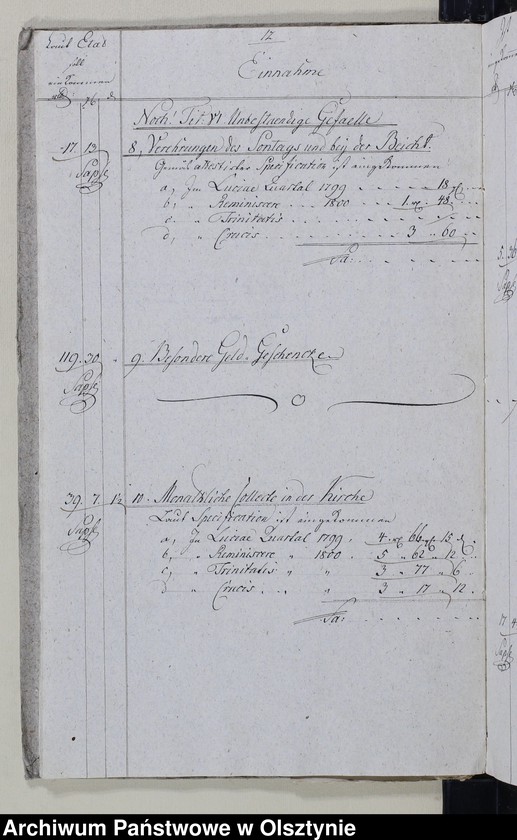 12
Laut Etat
soll
einkommen
Einnahme
Noch: Tit VI Unbestaendige Gefaelle
17 13
8, Verehrungen des Sontags und bey der Beicht.
Specification ist eingekommen
a, Im Luciae Quartal 1799 18
b, " Reminiscere 1800 1. 48
c, " Trinitatis
d, " Crucis 3 " 60
Sa:
119. 30
9. Besondere Geld-Geschencke
0
39. 7. 12
10. Monathliche Collecte in der Kirche
Laut Specification ist eingekommen
a, Im Luciae Quartal 1799, 4 66 15
b, " Reminiscere " 1800 5 " 62 " 12
c, " Trinitatis " " 3 " 77 " 6
d " Crucis " 3 " 17 " 12.
Sa:
Archiwum Państwowe w Olsztynie